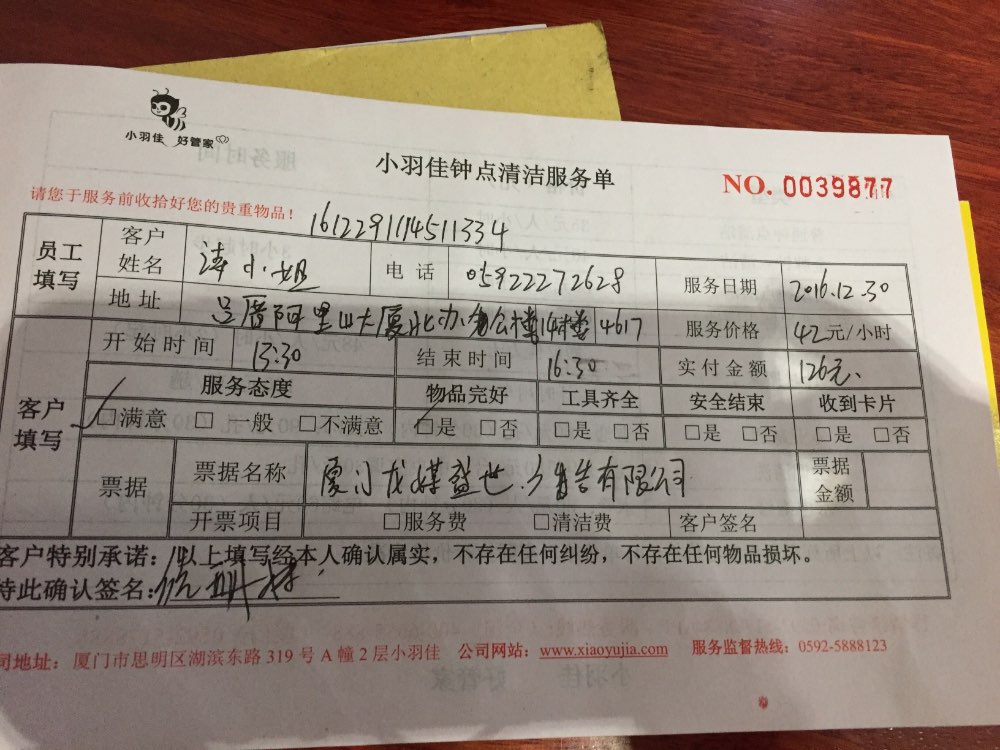 小羽佳 好管家
小羽佳钟点清洁服务单
NO. 0039877
请您于服务前收拾好您的贵重物品！
1612291114511334
员工填写 客户姓名 涛小姐 电话 05922272628 服务日期 2016.12.30
地址 吕厝阿里山大厦北办公楼14楼 4617 服务价格 42元/小时
客户填写 开始时间 13:30 结束时间 16:30 实付金额 126元.
服务态度 物品完好 工具齐全 安全结束 收到卡片
□满意 □一般 □不满意 □是 □否 □是 □否 □是 □否 □是 □否
票据 票据名称 厦门龙媒盛世广告有限公司 票据金额
开票项目 □服务费 □清洁费 客户签名
客户特别承诺：以上填写经本人确认属实，不存在任何纠纷，不存在任何物品损坏。
特此确认签名：
司地址：厦门市思明区湖滨东路 319 号 A 幢 2 层小羽佳 公司网站：www.xiaoyujia.com 服务监督热线：0592-5888123